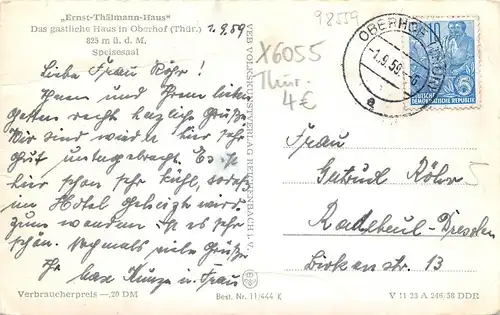 „Ernst-Thälmann-Haus"
Das gastliche Haus in Oberhof (Thür.)
825 m ü. d. M.
Speisesaal
1.9.59
98559
X6055
Thür.
4 €
OBERHOF (THÜR)
-1.9.59.-6
a
10
5
DEUTSCHE
DEMOKRATISCHE REPUBLIK
Liebe Frau Röhr!
Ihnen und Ihren lieben
Gästen recht herzliche Grüße.
Wir sind wieder hier sehr
gut untergebracht. Es ist
hier schon sehr kühl, sodaß
im Hotel geheizt wird.
Zum wandern ist es sehr
schön. Nochmals viele Grüße
Ihr Max Kunze u. Frau
Frau
Gertrud Röhr
5
Radebeul-Dresden
Birkenstr. 13
VEB VOLKSKUNSTVERLAG REICHENBACH I. V.
Verbraucherpreis —,20 DM
Best. Nr. 11/444 K
V 11 23 A 246/58 DDR